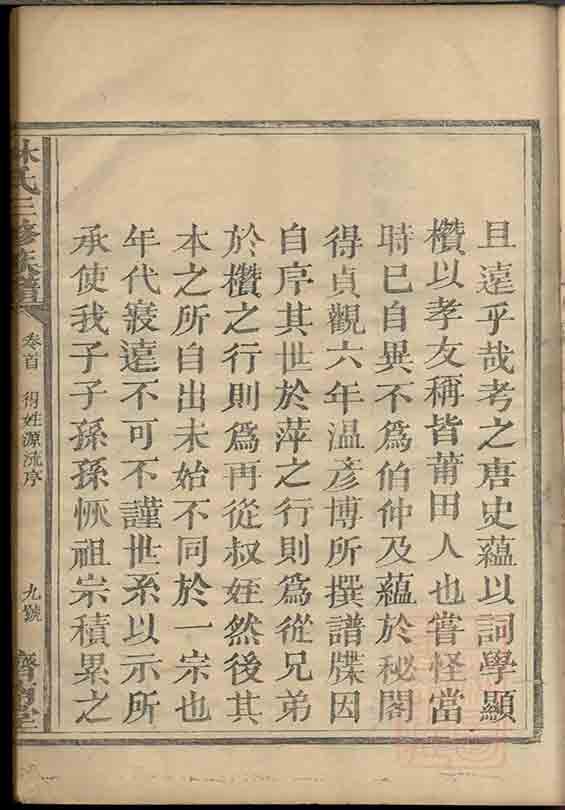 且遠乎哉考之唐史蘊以詞學顯
欑以孝友稱皆莆田人也嘗怪當
時已自異不為伯仲及蘊於秘閣
得貞觀六年温彦博所撰譜牒因
自序其世於萍之行則為從兄弟
於欑之行則為再從叔姪然後其
本之所自出未始不同於一宗也
年代寖遠不可不謹世系以示所
承使我子子孫孫恢祖宗積累之
林氏三修族譜
卷首 得姓源流序
九號